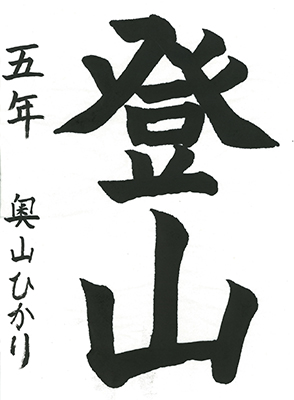 登山
五年 奥山ひかり